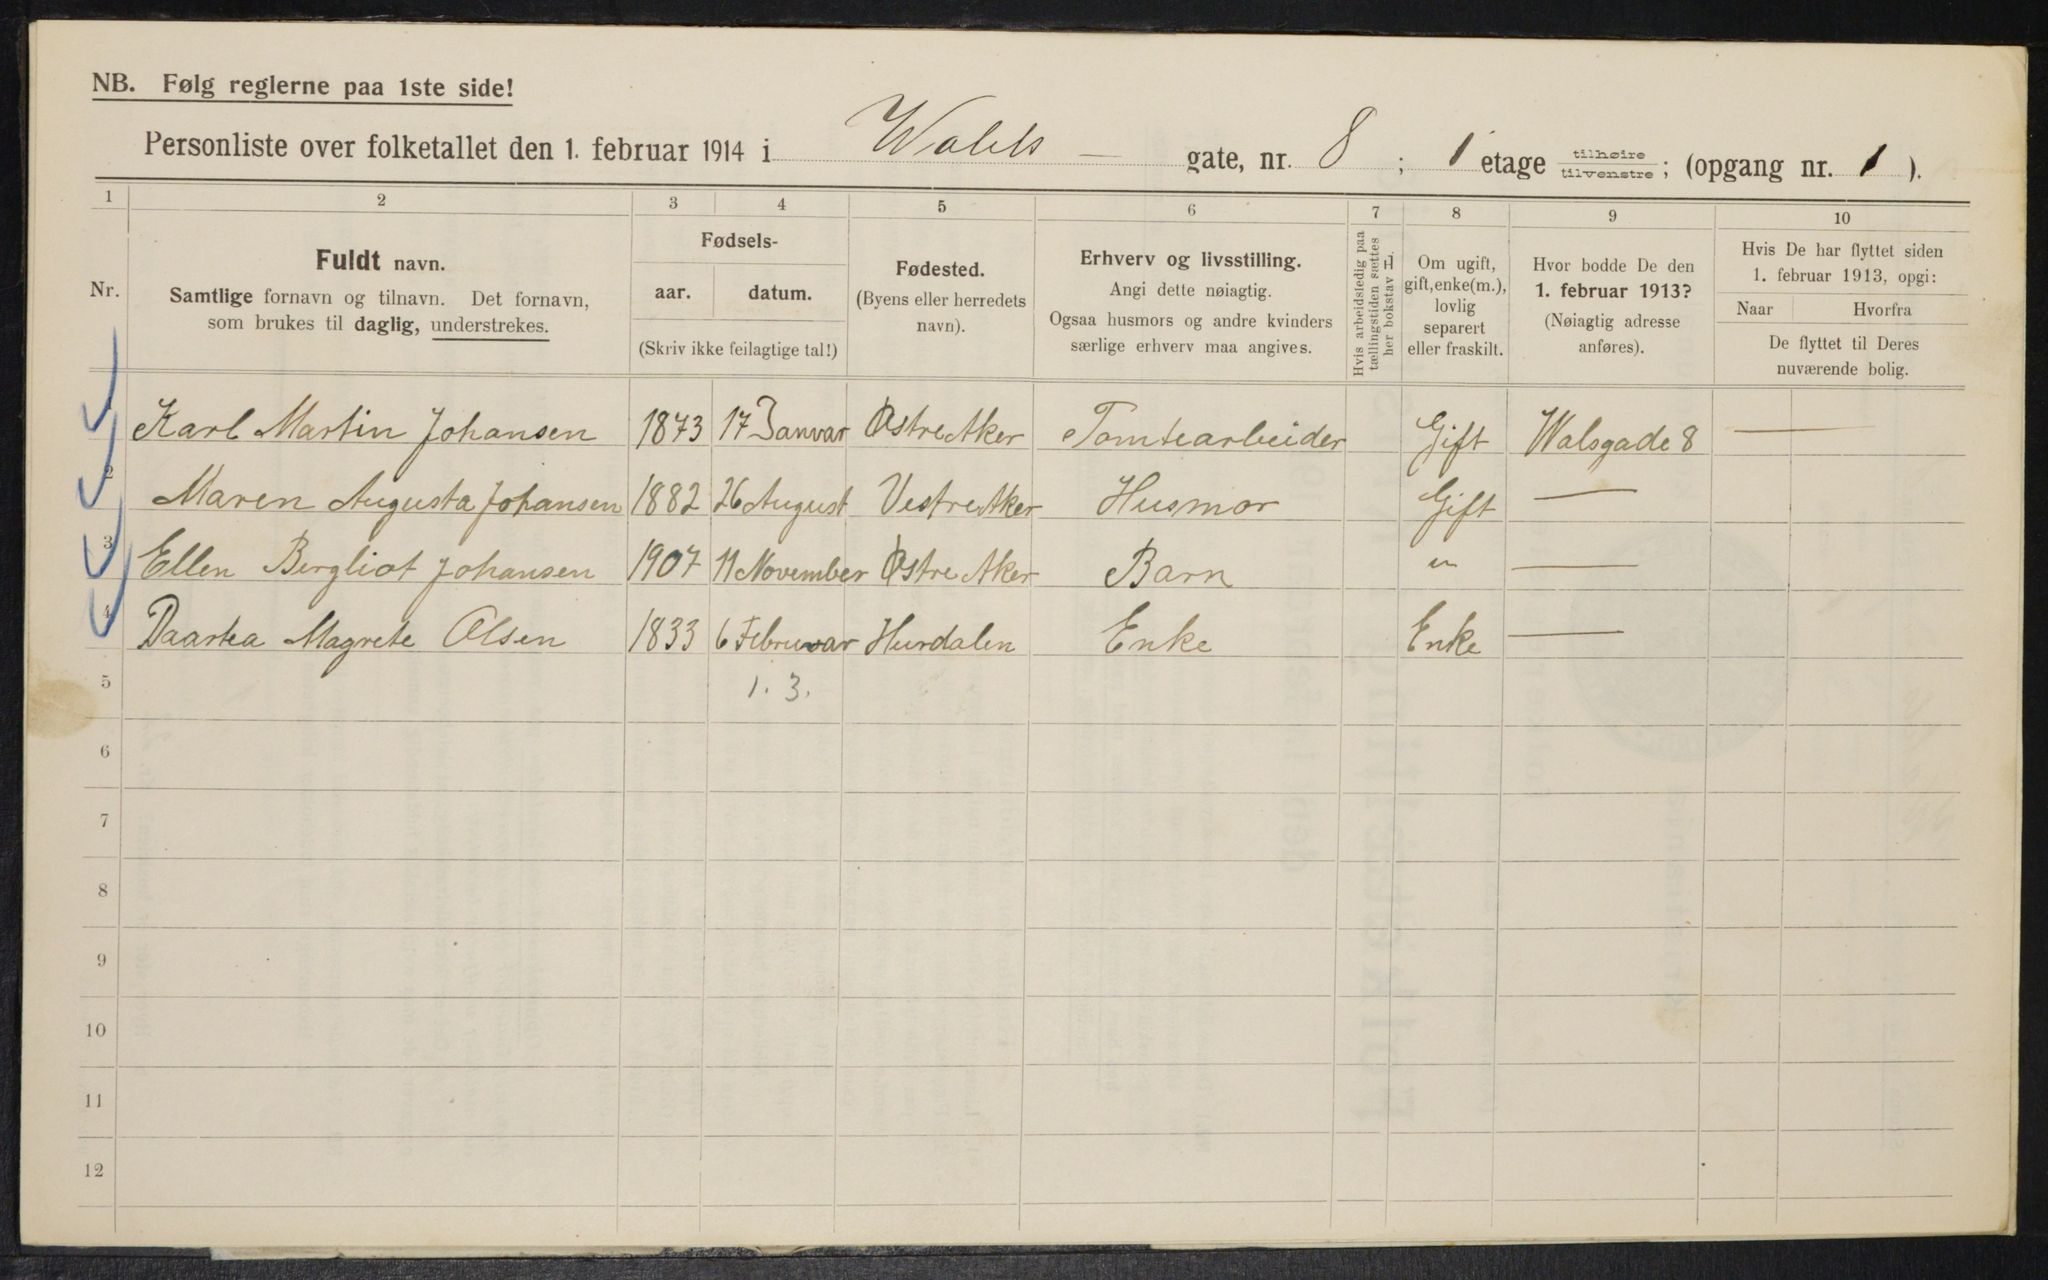 NB. Følg reglerne paa 1ste side!
Personliste over folketallet den 1. februar 1914 i Walds — gate, nr. 8 ; 1 etage tilhøire tilvenstre ; (opgang nr. 1 ).
1 2 3 4 5 6 7 8 9 10
Nr.
Fuldt navn.
Samtlige fornavn og tilnavn. Det fornavn,
som brukes til daglig, understrekes.
Fødsels-
aar. datum.
(Skriv ikke feilagtige tal!)
Fødested.
(Byens eller herredets
navn).
Erhverv og livsstilling.
Angi dette nøiagtig.
Ogsaa husmors og andre kvinders
særlige erhverv maa angives.
Hvis arbeidsledig paa
tællingstiden sættes
her bokstav L
Om ugift,
gift, enke(m.),
lovlig
separert
eller fraskilt.
Hvor bodde De den
1. februar 1913?
(Nøiagtig adresse
anføres).
Hvis De har flyttet siden
1. februar 1913, opgi:
Naar Hvorfra
De flyttet til Deres
nuværende bolig.
1 Karl Martin Johansen 1873 17 Januar Østre Aker Tomtearbeider Gift Walsgade 8 —
2 Maren Augusta Johansen 1882 26 August Vestre Aker Husmor Gift —
3 Ellen Bergliot Johansen 1907 11 November Østre Aker Barn " —
4 Daartea Magrete Olsen 1833 6 Februar Hurdalen Enke Enke —
5 1. 3.
6
7
8
9
10
11
12